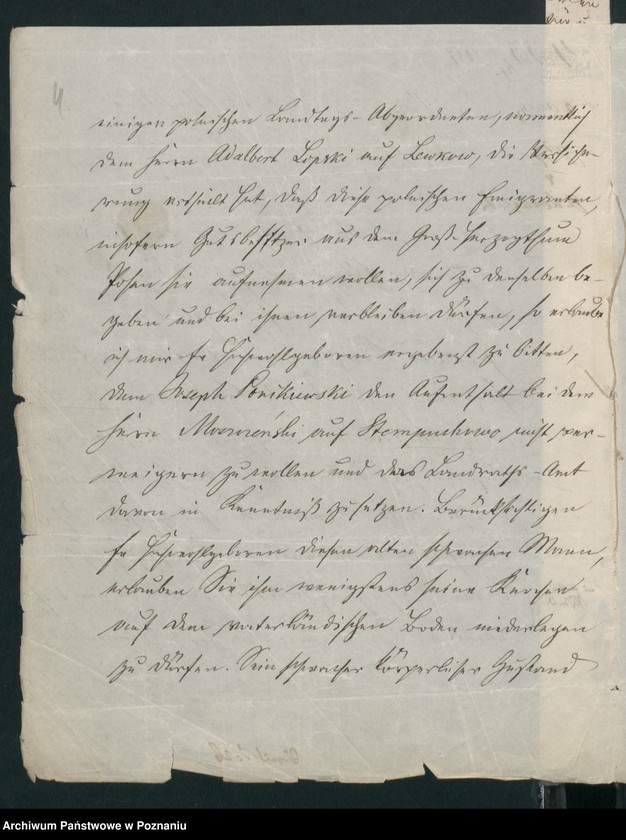 4
einigen polnischen Landtags-Abgeordneten, namentlich
dem Herrn Adalbert Lipski auf Lewkow, die Versiche-
rung ertheilt hat, daß diese polnischen Emigranten,
insofern Gutsbesitzer aus dem Groß-Herzogthum
Posen sie aufnehmen wollen, sich zu denselben be-
geben und bei ihnen verbleiben dürfen, so erlaube
ich mir Ew Hochwohlgeboren ergebenst zu bitten,
dem Joseph Ponikiewski den Aufenthalt bei dem
Herrn Moszczeński auf Stempuchowo nicht ver-
weigern zu wollen und das Landraths-Amt
davon in Kenntniß zu setzen. Berücksichtigen
Ew Hochwohlgeboren diesen alten schwachen Mann,
erlauben Sie ihm wenigstens seine Knochen
auf dem vaterländischen Boden niederlegen
zu dürfen. Sein schwacher körperlicher Zustand
Archiwum Państwowe w Poznaniu